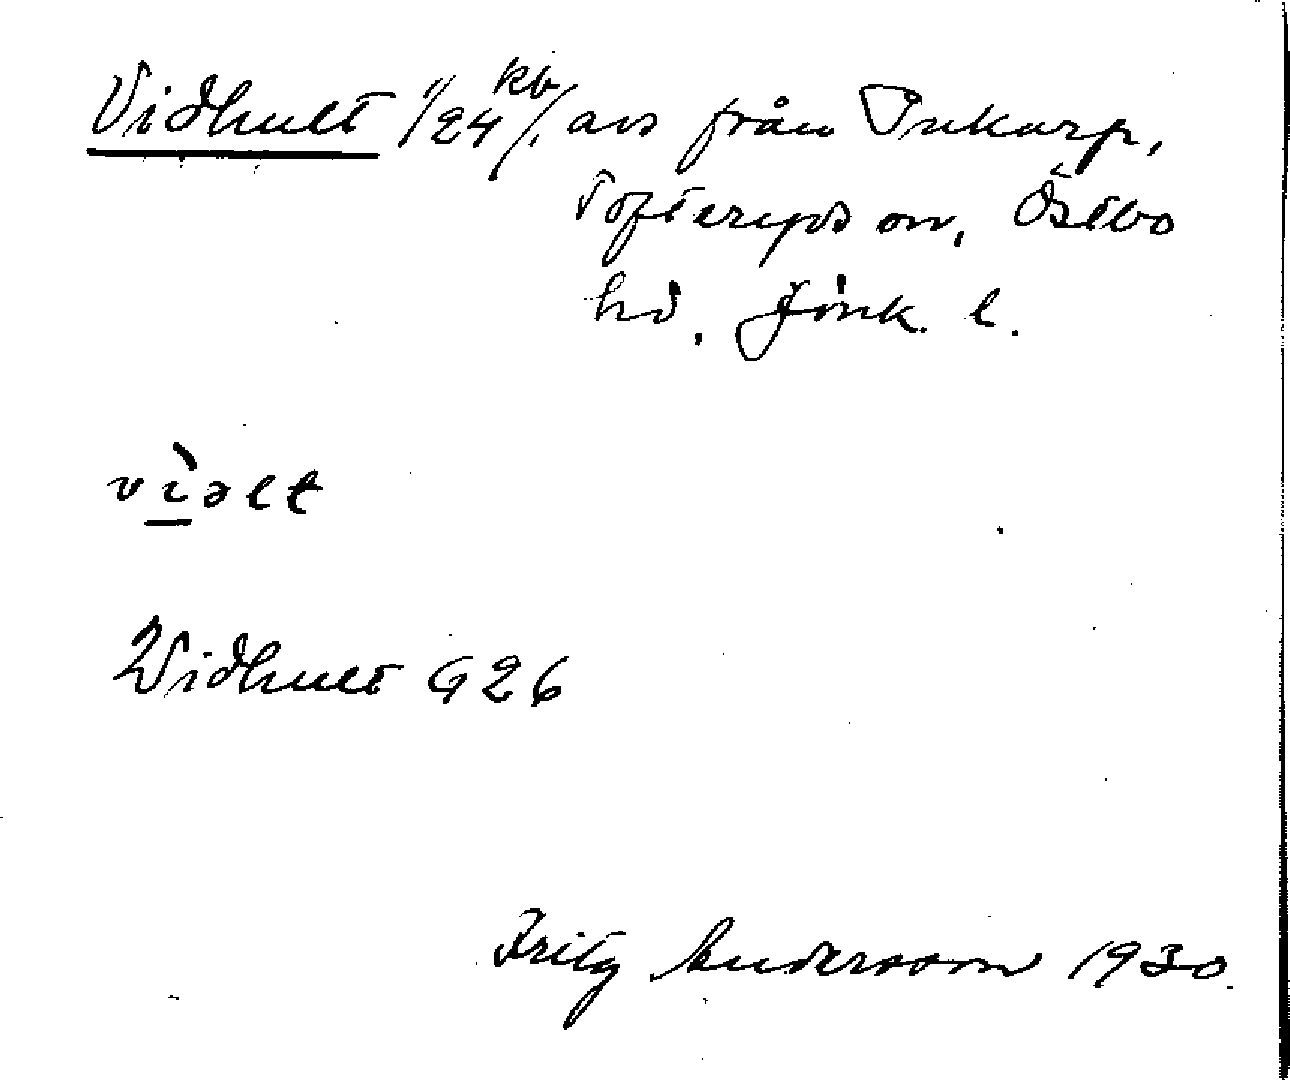 Vidhult 1/24 kb/. avs från Inkarp,
Tofteryds sn, Östbo
hd. Jönk. l.
vìəlt
Widhult G26
Fritz Andersson 1930.